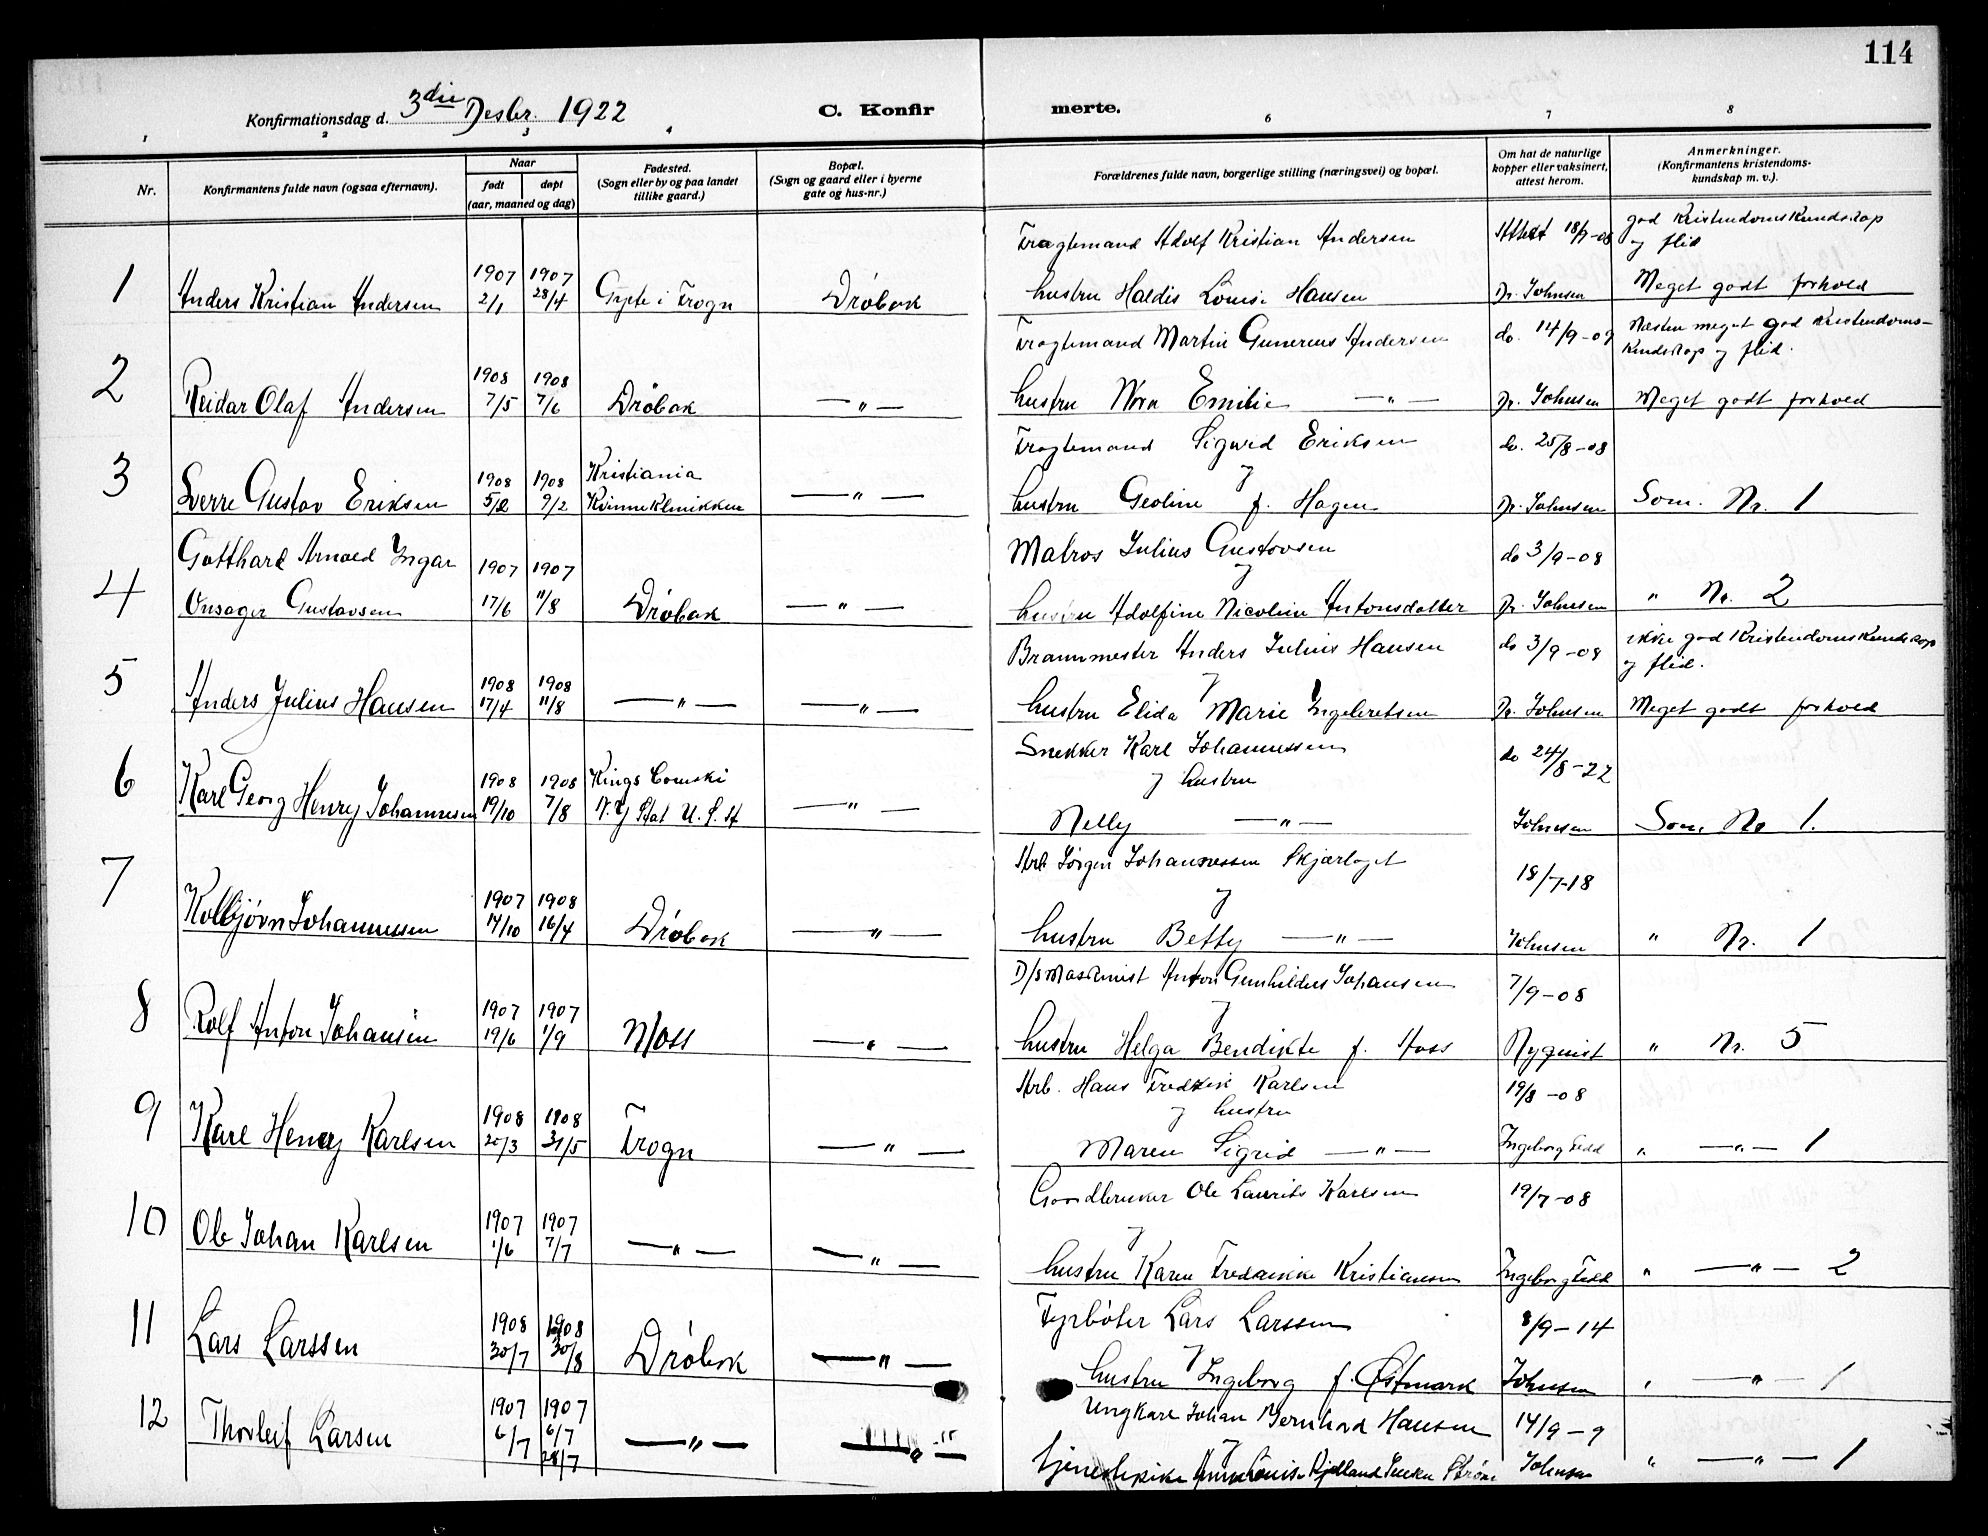 114
Konfirmationsdag d. 3die Desbr. 1922
C. Konfirmerte.
1 2 3 4 6 7 8
Nr.
Konfirmantens fulde navn (ogsaa efternavn).
Naar
født døpt
(aar, maaned og dag)
Fødested.
(Sogn eller by og paa landet
tillike gaard.)
Bopæl.
(Sogn og gaard eller i byerne
gate og hus-nr.)
Forældrenes fulde navn, borgerlige stilling (næringsvei) og bopæl.
Om hat de naturlige
kopper eller vaksinert,
attest herom.
Anmerkninger.
(Konfirmantens kristendoms-
kundskap m. v.).
Fragtemand Adolf Kristian Andersen Attest 18/9-08 god Kristendomskundskap
og flid
1 Anders Kristian Andersen 1907 2/1 1907 28/4 i Frogn Drøbak hustru Haldis Louise Hansen Dr. Johnsen Meget godt forhold
Fragtemand Martin Gunerius Andersen do. 14/9-09 Næsten meget god Kristendoms-
kundskap og flid.
2 Reidar Olaf Andersen 1908 7/5 1908 7/6 Drøbak —"— hustru Nora Emilie —"— Dr. Johnsen Meget godt forhold
Fragtemand Sigurd Eriksen do. 25/8-08
og
3 Sverre Gustav Eriksen 1908 5/2 1908 9/2 Kristiania Kvinneklinikken —"— hustru Geoline f. Hagen Dr. Johnsen Som. Nr. 1
Gotthard Arnold Ingar Matros Julius Gustavsen do 3/9-08
og
4 Onsager Gustavsen 1907 17/6 1907 11/8 Drøbak —"— hustru Adolfine Nicoline Antonsdatter Dr. Johnsen " Nr. 2
Brannmester Anders Julius Hansen do 3/9-08 ikke god Kristendomskundskap
og flid.
5 Anders Julius Hansen 1908 17/4 1908 11/8 —"— —"— hustru Elida Marie Ingebretsen Dr. Johnsen Meget godt forhold
Snekker Karl Johannessen do 24/8-22
og hustru
6 Karl Georg Henry Johannesen 1908 19/10 1908 7/8 Kings N.Y Stat U.S.A —"— Nelly —"— Johnsen Som. No 1.
Arb Jørgen Johannessen Skjærlaget 18/7-18
og
7 Kolbjørn Johannessen 1907 14/10 1908 16/4 Drøbak —"— hustru Betty —"— Johnsen " Nr. 1
D/s Maskinist Anton Johansen 7/9-08
og
8 Rolf Anton Johansen 1907 19/6 1907 1/9 Moss —"— hustru Helga Bendikte f. Aass Nyquist " Nr. 5
Arb. Hans Fredrik Karlsen 19/8-08
og hustru
9 Karl Henry Karlsen 1908 20/3 1908 31/5 Frogn —"— Maren Sigrid —"— Ingeborg " —"— 1
Gaardbruker Ole Laurits Karlsen 19/7-08
og
10 Ole Johan Karlsen 1907 1/6 1907 7/7 —"— —"— hustru Karen Fredrikke Kristiansen Ingeborg " —"— 2
Fyrbøter Lars Larssen 8/9-14
og
11 Lars Larssen 1908 30/7 1908 30/8 Drøbak —"— hustru Ingeborg f. Østmark Johnsen " —"— 1
Ungkarl Johan Bernhard Hansen 14/9-9
og
12 Thorleif Larsen 1907 6/7 1907 28/7 —"— —"— tjenestepike Anna Louise Johnsen " —"— 1